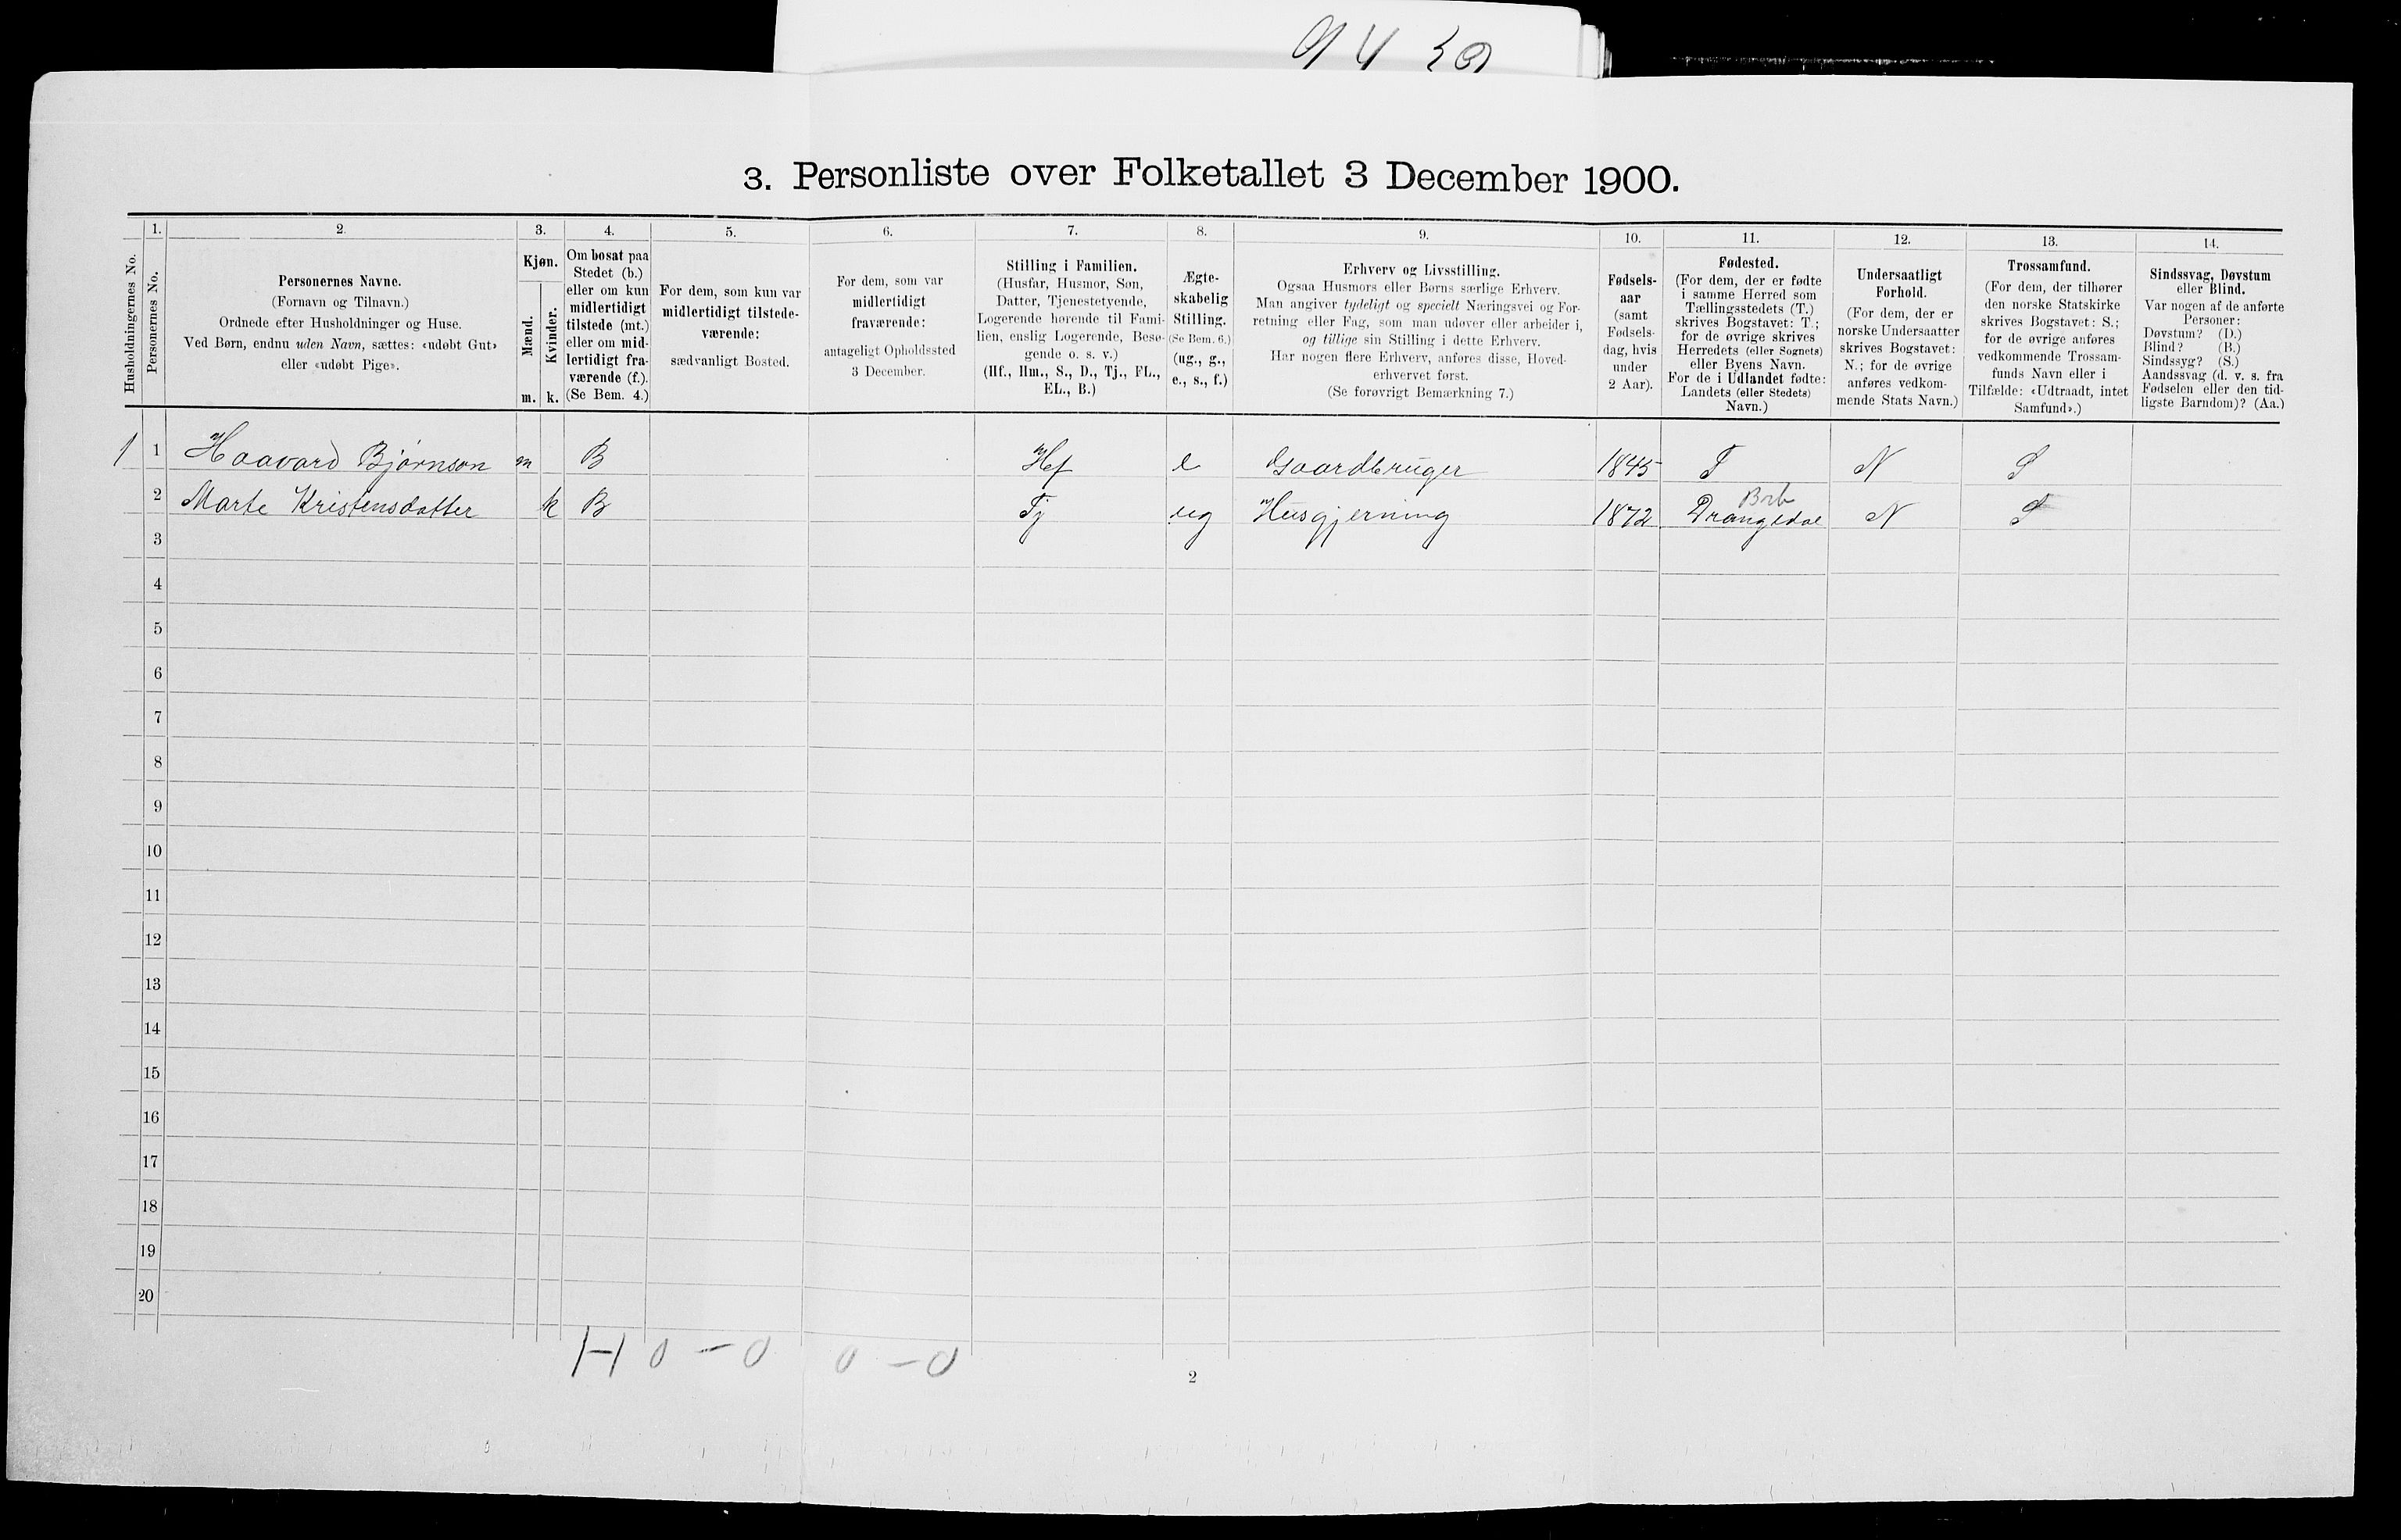 3. Personliste over Folketallet 3 December 1900.
Husholdningernes No.
1.
Personernes No.
2.
Personernes Navne.
(Fornavn og Tilnavn.)
Ordnede efter Husholdninger og Huse.
Ved Børn, endnu uden Navn, sættes: «udøbt Gut»
eller «udøbt Pige».
3.
Kjøn.
Mænd.
Kvinder.
m. k.
4.
Om bosat paa
Stedet (b.)
eller om kun
midlertidigt
tilstede (mt.)
eller om mid-
lertidigt fra-
værende (f.).
(Se Bem. 4.)
5.
For dem, som kun var
midlertidigt tilstede-
værende:
sædvanligt Bosted.
6.
For dem, som var
midlertidigt
fraværende:
antageligt Opholdssted
3 December.
7.
Stilling i Familien.
(Husfar, Husmor, Søn,
Datter, Tjenestetyende,
Logerende hørende til Fami-
lien, enslig Logerende, Besø-
gende o. s. v.)
(Hf., Hm., S., D., Tj., FL.,
EL., B.)
8.
Ægte-
skabelig
Stilling.
(Se Bem. 6.)
(ug., g.,
e., s., f.)
9.
Erhverv og Livsstilling.
Ogsaa Husmors eller Børns særlige Erhverv.
Man angiver tydeligt og specielt Næringsvei og For-
retning eller Fag, som man udøver eller arbeider i,
og tillige sin Stilling i dette Erhverv.
Har nogen flere Erhverv, anføres disse, Hoved-
erhvervet først.
(Se forøvrigt Bemærkning 7.)
10.
Fødsels-
aar
(samt
Fødsels-
dag, hvis
under
2 Aar).
11.
Fødested.
(For dem, der er fødte
i samme Herred som
Tællingsstedets (T.)
skrives Bogstavet: T.;
for de øvrige skrives
Herredets (eller Sognets)
eller Byens Navn.
For de i Udlandet fødte:
Landets (eller Stedets)
Navn.)
12.
Undersaatligt
Forhold.
(For dem, der er
norske Undersaatter
skrives Bogstavet:
N.; for de øvrige
anføres vedkom-
mende Stats Navn.)
13.
Trossamfund.
(For dem, der tilhører
den norske Statskirke
skrives Bogstavet: S.;
for de øvrige anføres
vedkommende Trossam-
funds Navn eller i
Tilfælde: «Udtraadt, intet
Samfund».)
14.
Sindssvag, Døvstum
eller Blind.
Var nogen af de anførte
Personer:
Døvstum? (D.)
Blind? (B.)
Sindssyg? (S.)
Aandssvag (d. v. s. fra
Fødselen eller den tid-
ligste Barndom)? (Aa.)
1 1 Haavard Bjørnson m B Hf e Gaardbruger 1845 T N S
2 Marte Kristensdatter k B Tj ug Husgjerning 1872 Drangedal N S
3
4
5
6
7
8
9
10
11
12
13
14
15
16
17
18
19
20
H 0 – 0 0 – 0
2